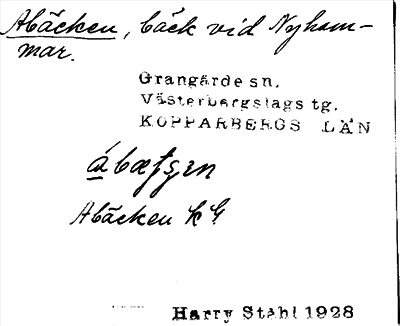 Abäcken, bäck vid Nyham-
mar.
Grangärde sn.
Västerbergslags tg.
KOPPARBERGS LÄN
Abäcken
Harry Ståhl 1928